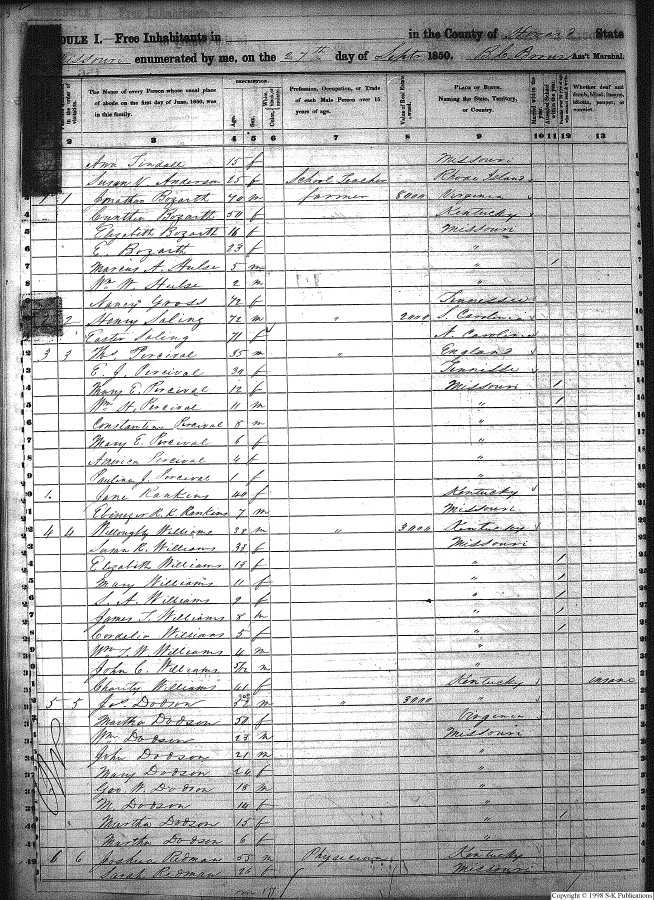 DULE I.—Free Inhabitants in in the County of Howard State
Missouri enumerated by me, on the 27th day of Sept 1850. Ass't Marshal.
DESCRIPTION.
The Name of every Person whose usual place of abode on the first day of June, 1850, was in this family.
Age.
Sex.
Profession, Occupation, or Trade of each Male Person over 15 years of age.
Value of Real Estate owned.
PLACE OF BIRTH. Naming the State, Territory, or Country.
Whether deaf and dumb, blind, insane, idiotic, pauper, or convict.
2 3 4 5 6 7 8 9 10 11 12 13
Ann Tindall 15 f Missouri
Susan V. Anderson 25 f School Teacher Rhode Island
1 1 Jonathan Bozarth 40 m farmer 8000 Virginia
Cynthia Bozarth 50 f Kentucky
Elizabeth Bozarth 16 f Missouri
E. Bozarth 23 f "
Marcus A. Hulse 5 m " 1
Wm W. Hulse 2 m "
Nancy Gooss 72 f Tennessee
2 2 Henry Saling 72 m " 2000 S. Carolina
Easter Saling 71 f N. Carolina
3 3 Ths Percival 35 m " England
E. J. Percival 39 f Tennessee
Mary E. Percival 12 f Missouri 1
Wm H. Percival 11 m " 1
Constantine Percival 8 m "
Mary E. Percival 6 f "
America Percival 4 f "
Paulina J. Percival 1 f "
Jane Rankins 40 f Kentucky
Ebinezer R. R. Rankins 7 m Missouri
4 4 Willoughby Williams 38 m " 3000 Kentucky
Susan R. Williams 33 f Missouri
Elizabeth Williams 13 f " 1
Mary Williams 11 f " 1
S. A. Williams 9 f " 1
James T. Williams 8 m " 1
Cordelia Williams 5 f " 1
Wm T. W. Williams 4 m "
John C. Williams 5/12 m "
Charity Williams f Kentucky insane
5 5 Jas Dodson 52 m " 3000 "
Martha Dodson 50 f Virginia
Wm Dodson 23 m Missouri
John Dodson 21 m "
Mary Dodson 20 f "
Geo W. Dodson 18 m "
M. Dodson 14 f "
Martha Dodson 15 f " 1
Martha Dodson 6 f "
6 6 Joshua Redman 53 m Physician Kentucky
Sarah Redman 26 f Missouri
Copyright © 1998 S-K Publications